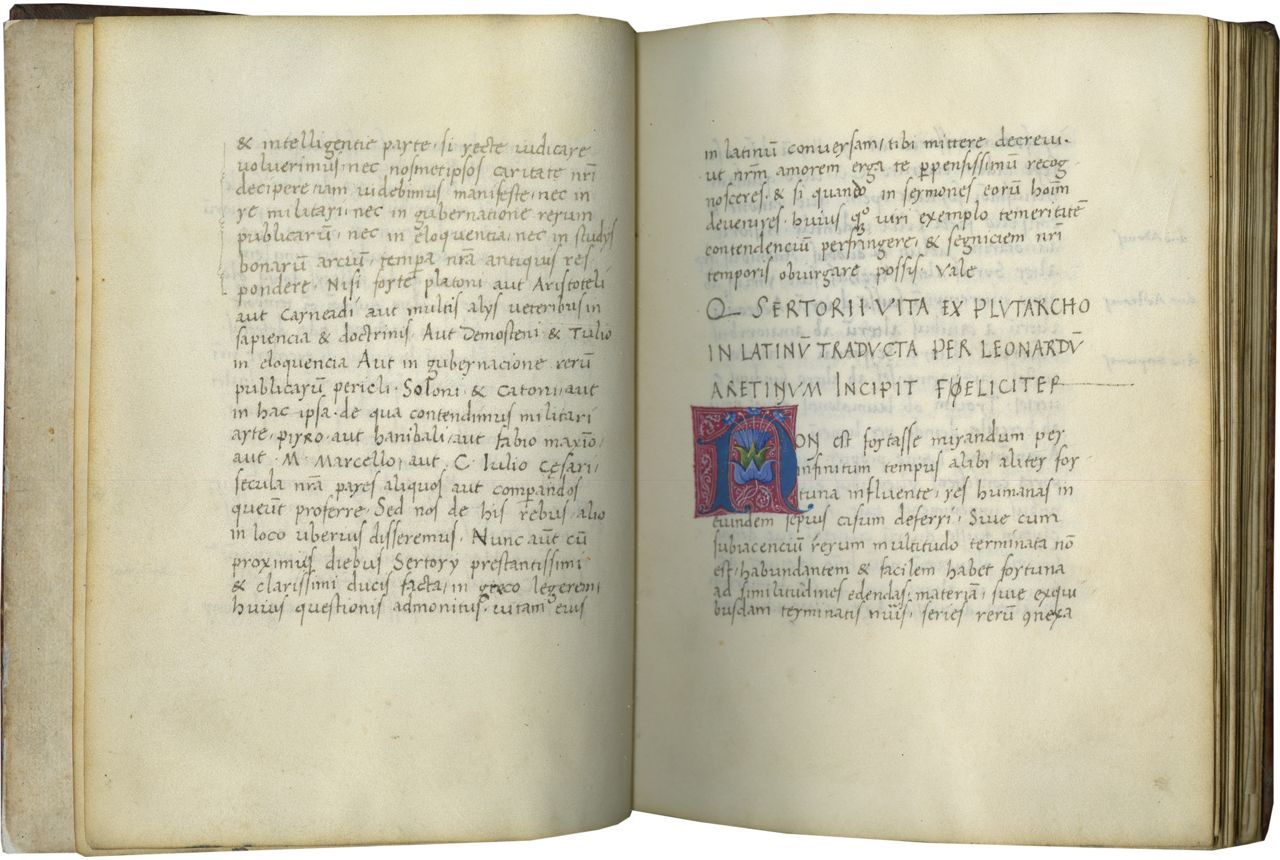 & intelligentie parte, si recte iudicare
voluerimus, nec nosmetipsos caritate nr̄i
decipere nam videbimus manifeste, nec in
re militari, nec in gubernatione rerum
publicarū, nec in eloquentia, nec in studijs
bonarū arciū, tempa nr̄a antiquis res
pondere. Nisi forte platoni aut Aristoteli
aut Carneadi aut multis alys veteribus in
sapiencia & doctrinis. Aut Demosteni & Tulio
in eloquencia Aut in gubernacione rerū
publicarū pericli. Soloni & Catoni, aut
in hac ipsa de qua contendimus militari
arte, pirro aut hanibali, aut fabio maxīo,
aut M. Marcello, aut C. Iulio Cęsari,
secula nr̄a pares aliquos aut compandos
queūt proferre, Sed nos de his rebus, alio
in loco uberius disseremus. Nunc aūt cū
proximis diebus Sertory prestantissimi
& clarissimi ducis facta, in greco legerem,
huius questionis admonitus, vitam eius
in latinū conversam, tibi mittere decrevi.
ut nr̄m amorem erga te ppensissimū recog
nosceres. & si quando in sermones eorū hoīm
devenires, huius qͦ viri exemplo temeritatē
contendenciū perfringere, & segniciem nr̄i
temporis obiurgare possis. Vale
Q SERTORII VITA EX PLVTARCHO
IN LATINV̄ TRADVCTA PER LEONARDV̄
ARETINVM INCIPIT FOELICITER
NON est fortasse mirandum per
infinitum tempus alibi aliter for
tuna influente, res humanas in
eundem sepius casum deferri, Sive cum
subiacenciū rerum multitudo terminata nō
est, habundantem & facilem habet fortuna
ad similitudines edendas, materiā, sive exqui
busdam terminatis nūis, series rerū ꝯnexa